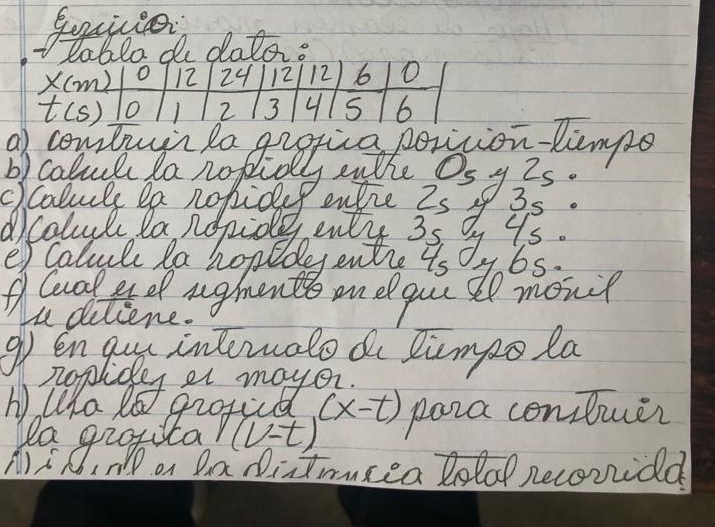 Ejercicio:
- tabla de datos:
x(m) | 0 | 12 | 24 | 12 | 12 | 6 | 0
t(s) | 0 | 1 | 2 | 3 | 4 | 5 | 6
a) construir la grafica posición-tiempo
b) Calcule la rapidez entre 0s y 2s.
c) Calcule la rapidez entre 2s y 3s.
d) Calcule la rapidez entre 3s y 4s.
e) Calcule la rapidez entre 4s y 6s.
f) Cual es el segmento en el que el móvil
se detiene.
g) En que intervalo de tiempo la
rapidez es mayor.
h) Usa la grafica (x-t) para construir
la grafica (V-t)
i) ¿cual es la distancia total recorrida?